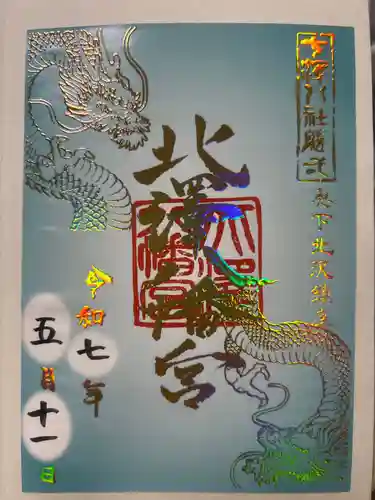 七沢八社随一
下北沢鎮座
北澤八幡宮
北澤八幡宮
令和七年
五月十一日